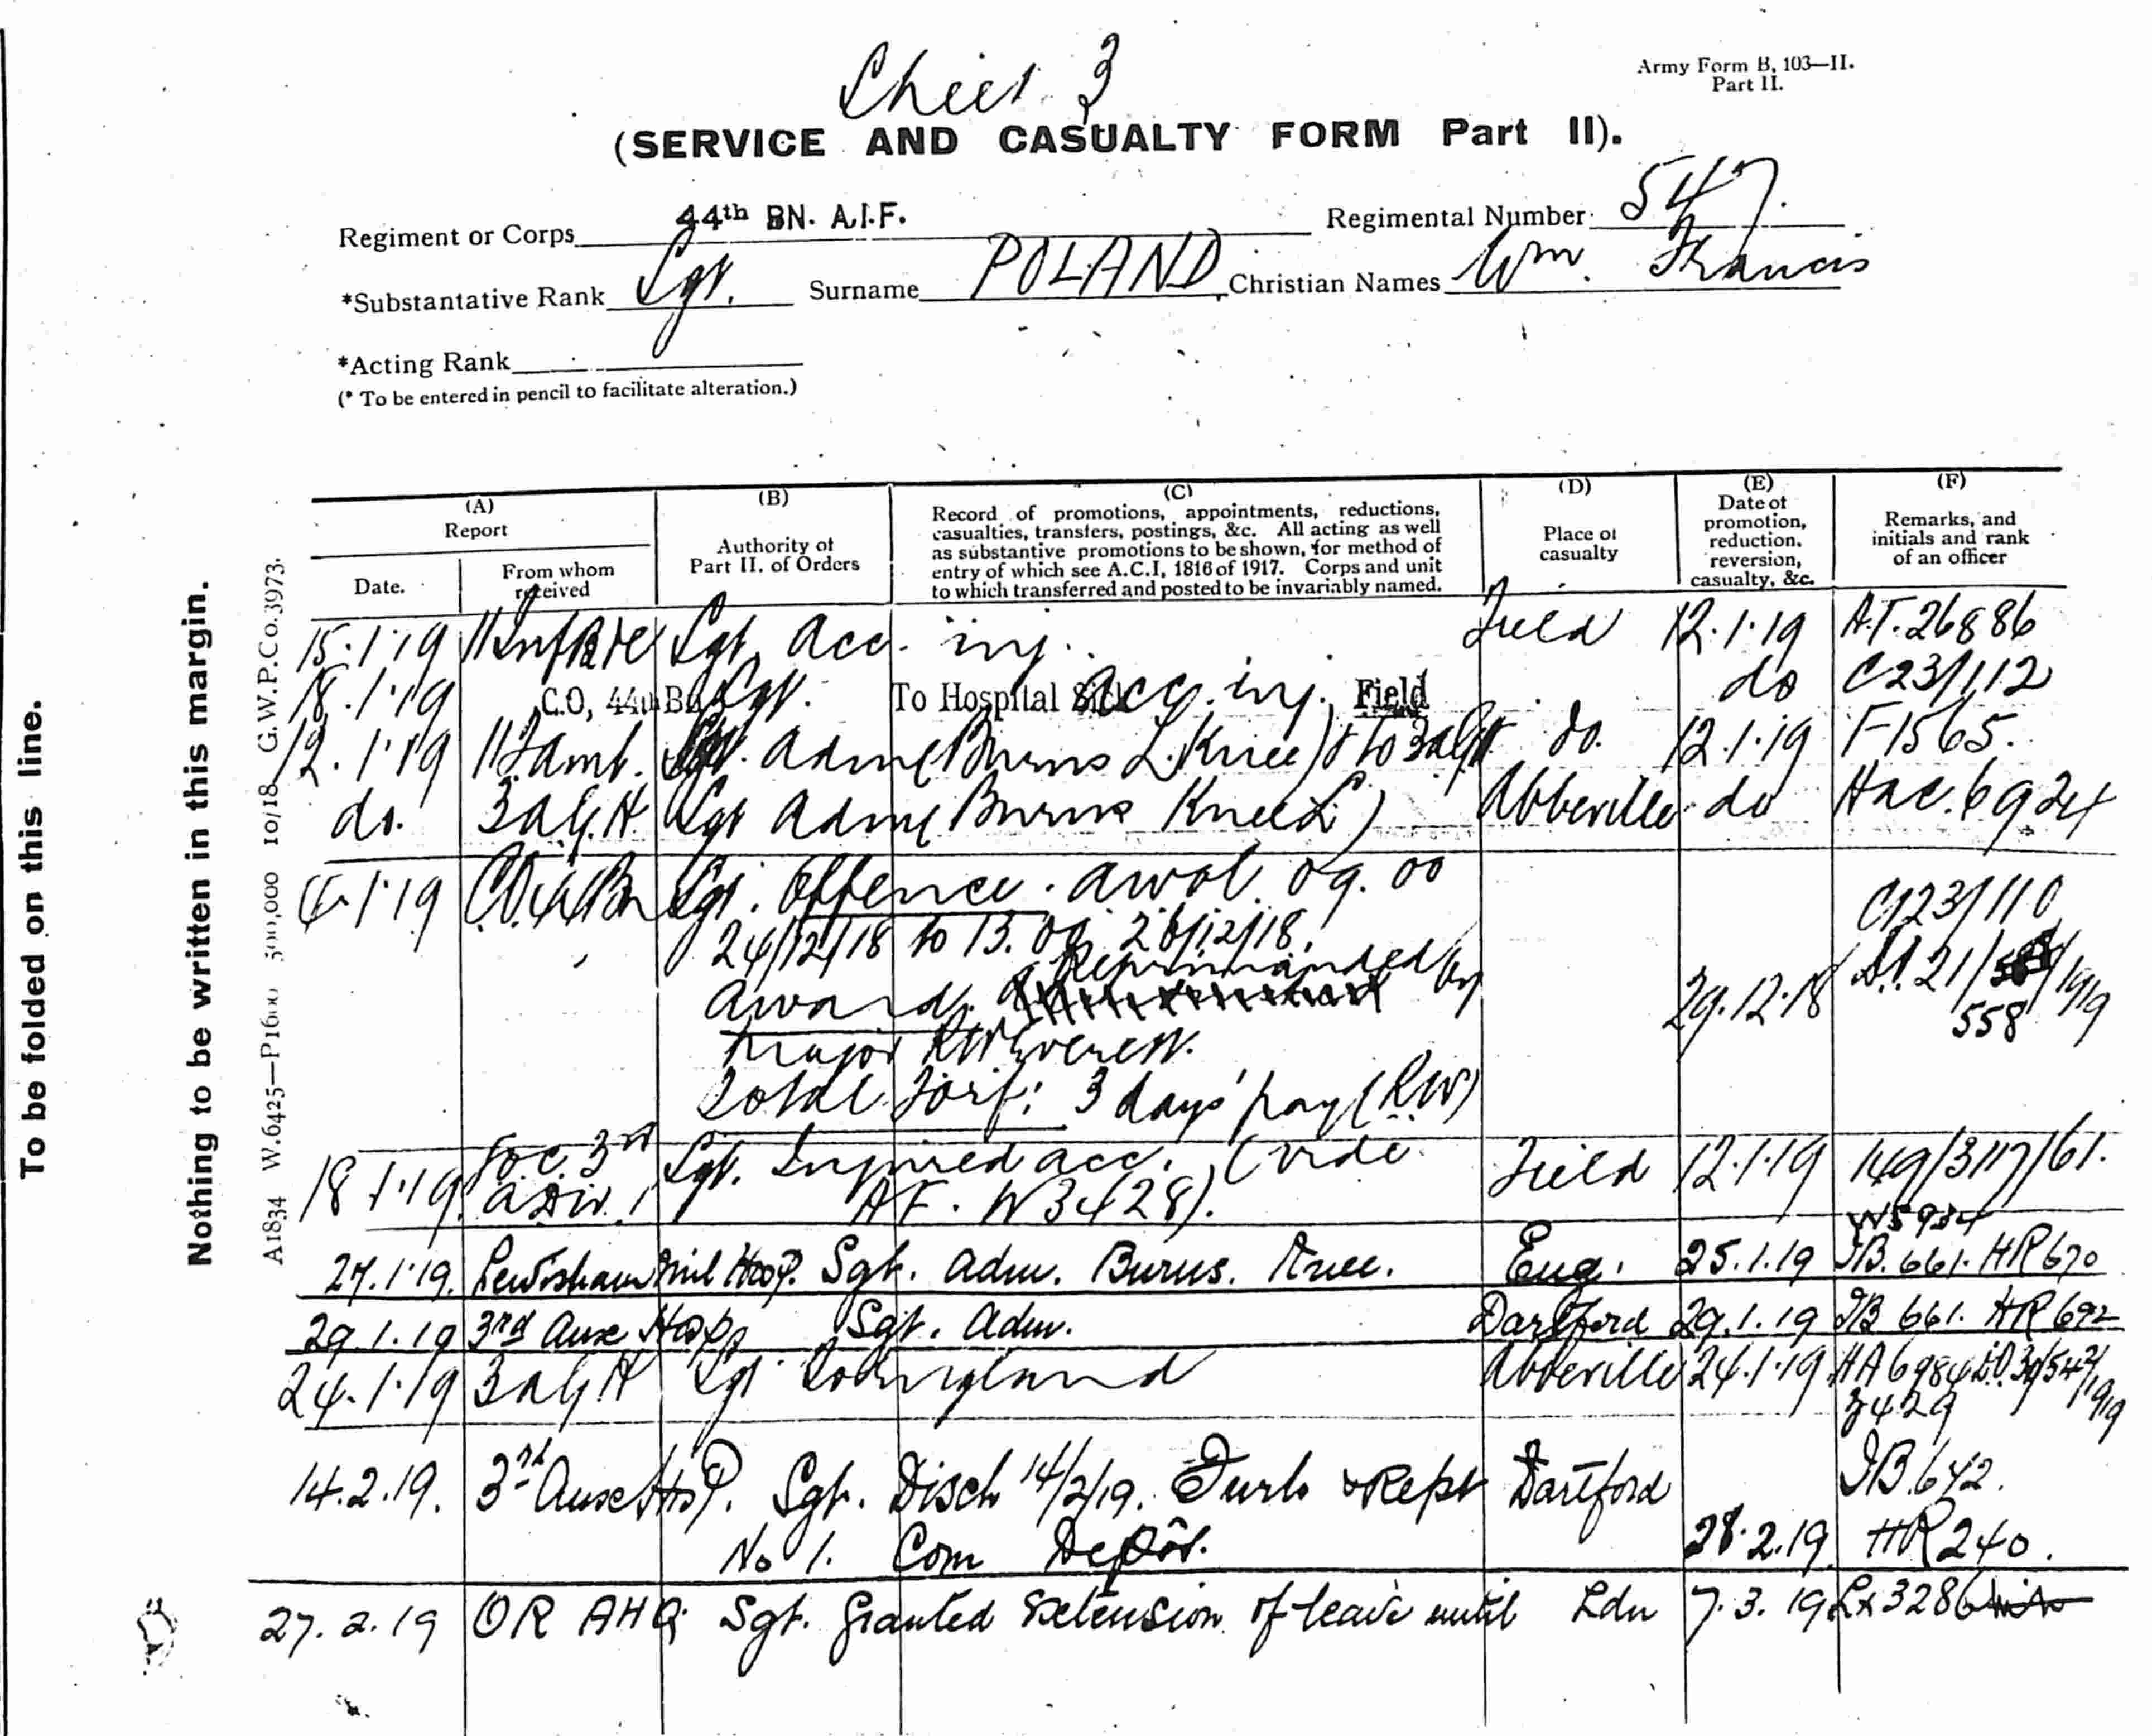 Sheet 3
Army Form B, 103—II.
Part II.
(SERVICE AND CASUALTY FORM Part II).
Regiment or Corps 44th BN. A.I.F. Regimental Number 547.
*Substantative Rank Sgt. Surname POLAND Christian Names Wm. Francis
*Acting Rank
(* To be entered in pencil to facilitate alteration.)
To be folded on this line.
Nothing to be written in this margin.
A1834 W.6425—P1600 500,000 10/18 G.W.P.Co.3973.
(A) (B) (C) (D) (E) (F)
Report
Date.
From whom
received
Authority of
Part II. of Orders
Record of promotions, appointments, reductions,
casualties, transfers, postings, &c. All acting as well
as substantive promotions to be shown, for method of
entry of which see A.C.I, 1816 of 1917. Corps and unit
to which transferred and posted to be invariably named.
Place of
casualty
Date of
promotion,
reduction,
reversion,
casualty, &c.
Remarks, and
initials and rank
of an officer
15.1.19 11 Inf Bde Sgt. acc. inj. Field 12.1.19 A.F. 26886
18.1.19 C.O, 44th Bn Sgt. To Hospital Sick acc. inj. Field do C23/112
12.1.19 11 F amb. Sgt. adm (Burns L. Knee) & to 3 a G H do. 12.1.19 F1565.
do. 3 a G. H. Sgt adm (Burns Knee L) Abbeville do Hac. 6924
1.19 C.O. 44 Bn Sgt. Offence. awol. 09.00
24/12/18 to 13.00 26/12/18.
C123/110
Award. Reprimanded by
29.12.18 D.O. 21/558/1919
Major Everett.
Total Forf: 3 days' pay (RW)
18.1.19 GOC. 3rd Sgt. Injured acc. (vide Field 12.1.19 149/3117/61.
a Div. AF. W3428).
W5934
27.1.19. Lewisham Mil Hosp. Sgt. adm. Burns. Knee. Eng. 25.1.19 JB. 661. HR 670
29.1.19 3rd Aux Hosp Sgt. adm. Dartford 29.1.19 JB 661. HR 692
24.1.19 3 a G H Sgt to England Abbeville 24.1.19 HA 6984 D.O. 30/542/1919
3429
14.2.19. 3rd Aux Hosp. Sgt. Disch 14/2/19. Furlo & Rept Dartford JB 642.
No 1. Com Depôt. 28.2.19. HR 240.
27.2.19 OR AHQ Sgt. Granted extension of leave until Ldn 7.3.19 Lx 3286